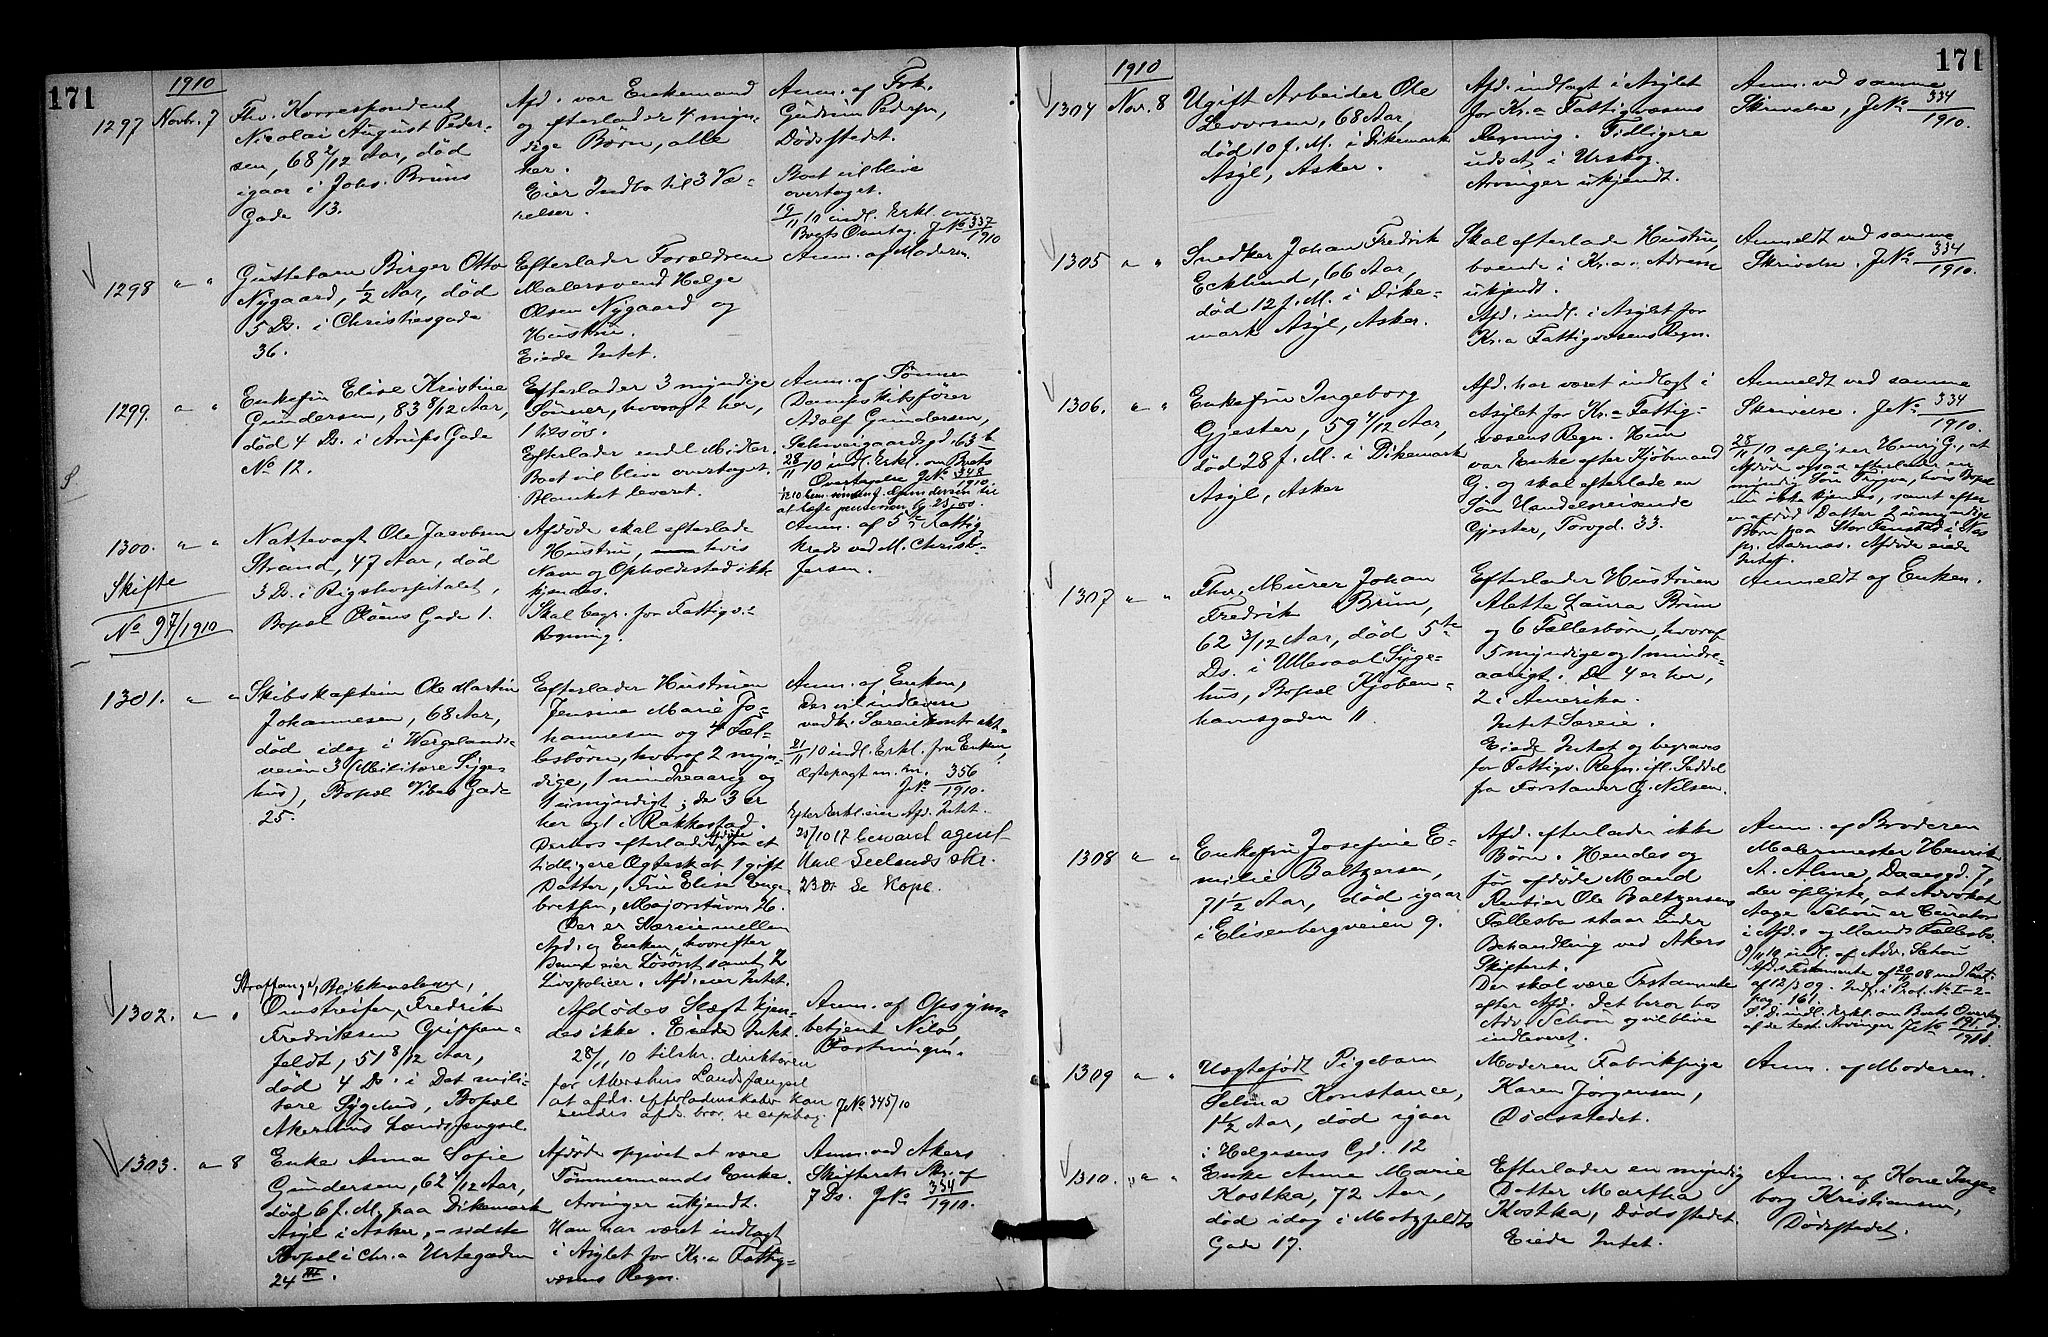 171
1910
1297 Novbr. 7
Fhv. Korrespondent
Nicolai August Peder-
sen, 68 2/12 Aar, død
igaar i Johs. Bruns
Gade 13.
Afd. var Enkemand
og efterlader 4 myn-
dige Børn, alle
her.
Eier Indbo til 3 Væ-
relser.
Anm. af Frk.
Gudrun Pedersen,
Dødsstedet.
Boet vil blive
overtaget.
19/11 10 indl. Erkl. om
Boets Overtag. JNo 337/1910
1298 " "
Guttebarn Birger Otto
Nygaard, 1/2 Aar, død
5 Ds. i Christiesgade
36.
Efterlader Forældrene
Malersvend Helge
Olsen Nygaard og
Hustru.
Eiede Intet.
Anm. af Moderen.
1299. " "
Enkefru Elise Kristine
Gundersen, 83 8/12 Aar,
død 4 Ds. i Arups Gade
No 12.
Efterlader 3 myndige
Sønner, hvoraf 2 her,
1 tilsøs.
Efterlader endel Midler.
Boet vil blive overtaget.
Blanket leveret.
Anm. af Sønnen
Dampskibsfører
Adolf Gundersen,
Schweigaardsgd. 63 b
28/11 10 indl. Erkl. om Boets
Overtagelse JNo 348/1910
1300. " "
Skifte
No 97/1910
Nattevagt Ole Jacobsen
Strand, 47 Aar, død
3 Ds. i Rigshospitalet,
Bopæl Oløens Gade 1.
Afdøde skal efterlade
Hustru, hvis
Navn og Opholdssted ikke
kjendes.
Skal begr. for Fattigv.s
Regning.
Anm. af 5te Fattig
kreds ved M. Christo-
fersen.
1301. " "
Skibskaptein Ole Martin
Johannesen, 68 Aar,
død idag i Wergelands-
veien 3 (Militære Syge-
hus), Bopæl Vibes Gade
25.
Efterlader Hustruen
Jensine Marie Jo-
hannesen og 4 Fæl-
lesbørn, hvoraf 2 myn-
dige, 1 mindreaarig og
1 umyndigt; de 3 er
her og 1 i Rakkestad.
Derhos efterlader Afdøde fra et
tidligere Ægteskab 1 gift
Datter, Fru Elise Enge-
bretsen, Majorstuvn. 26.
Der er Særeie mellem
Afd. og Enken, hvorefter
Denne eier Løsøret samt 2
Livspolicer. Afd. eier Intet.
Anm. af Enken,
Der vil indlevere
vedk. Særeiekontrakt.
21/11 10 indl. Erkl. fra Enken,
Ægtepagt m. m.
JNo 356/1910.
Efter Erkl. eier Afd. Intet.
1302. " "
Straffange, Blikkenslager,
Omstreifer Fredrik
Fredriksen Grippen-
feldt, 51 8/12 Aar,
død 4 Ds. i Det mili-
tære Sygehus, Bopæl
Akershus Landsfængsel.
Afdødes Slægt kjen-
des ikke. Eiede Intet.
28/11 10 tilskr. direktøren
for Akershus Landsfængsel
at afds. efterladenskaber kan
sendes afds. bror, se copibog
JNo 345/10
Anm. af Opsyns-
betjent Nils
1303. " 8
Enke Anna Sofie
Gundersen, 62 1/12 Aar,
død 6 f. M. paa Dikemark
Asyl i Asker, - sidste
Bopæl i Chr.a Urtegaden
24 III.
Afdøde opgivet at være
Tømmermands Enke.
Arvinger ukjendt.
Hun har været indlagt
i Asylet for Kr.a Fattig-
væsens Regn.
Anm. ved Akers
Skifterets Skr. af
7 Ds. JNo 334/1910.
171
1910
1304 Nov. 8
Ugift Arbeider Ole
Levorsen, 68 Aar,
død 10 f. M. i Dikemark
Asyl, Asker.
Afd. indlagt i Asylet
for Kr.a Fattigvæsens
Regning. Tidligere
udsat i Urskog.
Arvinger ukjendt.
Anm. ved samme
Skrivelse, JNo 334/1910.
1305 " "
Snedker Johan Fredrik
Ecklund, 66 Aar,
død 12 f. M. i Dike-
mark Asyl, Asker.
Skal efterlade Hustru,
boende i Kr.a. Adresse
ukjendt.
Afd. indl. i Asylet for
Kr.a Fattigvæsens Regn.
Anmeldt ved samme
Skrivelse. JNo 334/1910.
1306. " "
Enkefru Ingeborg
Gjester, 59 4/12 Aar,
død 28 f. M. i Dikemark
Asyl, Asker
Afd. har været indlagt i
Asylet for Kr.a Fattig-
væsens Regn. Hun
var Enke efter Kjøbmand
G. og skal efterlade en
Søn Handelsreisende
Gjester, Torvgd. 33.
Anmeldt ved samme
Skrivelse. JNo 334/1910.
28/11 10 oplyser Henrig G., at
Afdøde ogsaa efterlader en
myndig Søn Trygve, hvis Bopæl
nu ikke kjendes, samt efter
en afdød Datter 2 umyndige
Børn paa Stor Fensstad i Næs
pr. Aarnæs. Afdøde eiede
Intet.
1307 " "
Fhv. Murer Johan
Fredrik Brun,
62 3/12 Aar, død 5te
Ds. i Ullevaal Syge-
hus, Bopæl Kjøben-
havnsgaden 11.
Efterlader Hustruen
Alette Laura Brun
og 6 Fællesbørn, hvoraf
5 myndige og 1 mindre-
aarigt. De 4 er her,
2 i Amerika.
Intet Særeie.
Eiede Intet og begraves
for Fattigv. Regn. ifl. Seddel
fra Forstander G. Nilsen.
Anmeldt af Enken.
1308 " "
Enkefru Josefine E-
milie Baltzersen,
71 1/2 Aar, død igaar
i Elisenbergveien 9.
Afd. efterlader ikke
Børn. Hendes og
før afdøde Mand
Rentier Ole Baltzersens
Fællesbo staar under
Behandling ved Akers
Skifteret.
Der skal være Testamente
efter Afd. Det beror hos
Adv. Schou og vil blive
indleveret.
Anm. af Broderen
Malermester Henrik
A. Alme, Daasgd. 7,
der oplyste, at Advokat
Aage Schou er Curator
i Afd.s og Mands Fællesbo.
9/11 10 indl. af Adv. Schou
Afd.s Testamente af 20/11 08 med
af 12/3 09. Indf. i Prot. No I-2-
pag. 161.
S. D. indl. Erkl. om Boets Overtag.
af de test. Arvinger JNo
1309 " "
Uægtefødt Pigebarn
Selma Konstance,
1 1/2 Aar, død igaar
i Helgesens Gd. 12
Moderen Fabrikpige
Karen Jørgensen,
Dødsstedet.
Anm. af Moderen.
1310. " "
Enke Anne Marie
Kostka, 72 Aar,
død idag i Motzfeldts
Gade 17.
Efterlader en myndig
Datter Martha
Kostka, Dødsstedet.
Eiede Intet.
Anm. af Kone Inge-
borg Kristiansen,
Dødsstedet.